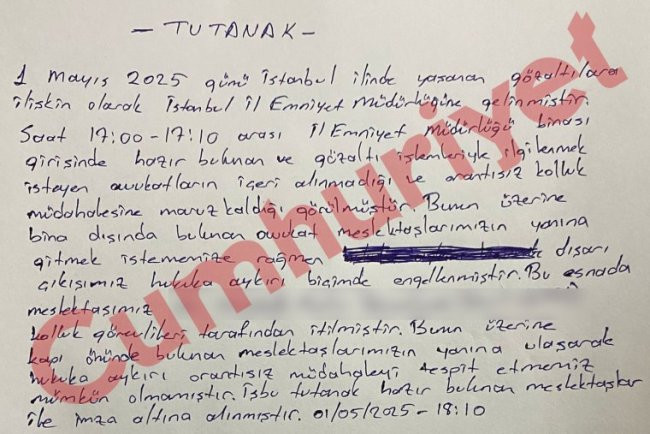 - TUTANAK -
1 Mayıs 2025 günü İstanbul ilinde yaşanan gözaltılara
ilişkin olarak İstanbul İl Emniyet Müdürlüğüne gelinmiştir.
Saat 17:00-17:10 arası İl Emniyet Müdürlüğü binası
girişinde hazır bulunan ve gözaltı işlemleriyle ilgilenmek
isteyen avukatların içeri alınmadığı ve orantısız kolluk
müdahalesine maruz kaldığı görülmüştür. Bunun üzerine
bina dışında bulunan avukat meslektaşlarımızın yanına
gitmek istememize rağmen dışarı
çıkışımız hukuka aykırı biçimde engellenmiştir. Bu esnada
meslektaşımız
kolluk görevlileri tarafından itilmiştir. Bunun üzerine
kapı önünde bulunan meslektaşlarımızın yanına ulaşarak
hukuka aykırı orantısız müdahaleyi tespit etmemiz
mümkün olmamıştır. İşbu tutanak hazır bulunan meslektaşlar
ile imza altına alınmıştır. 01/05/2025-18:10
Cumhuriyet